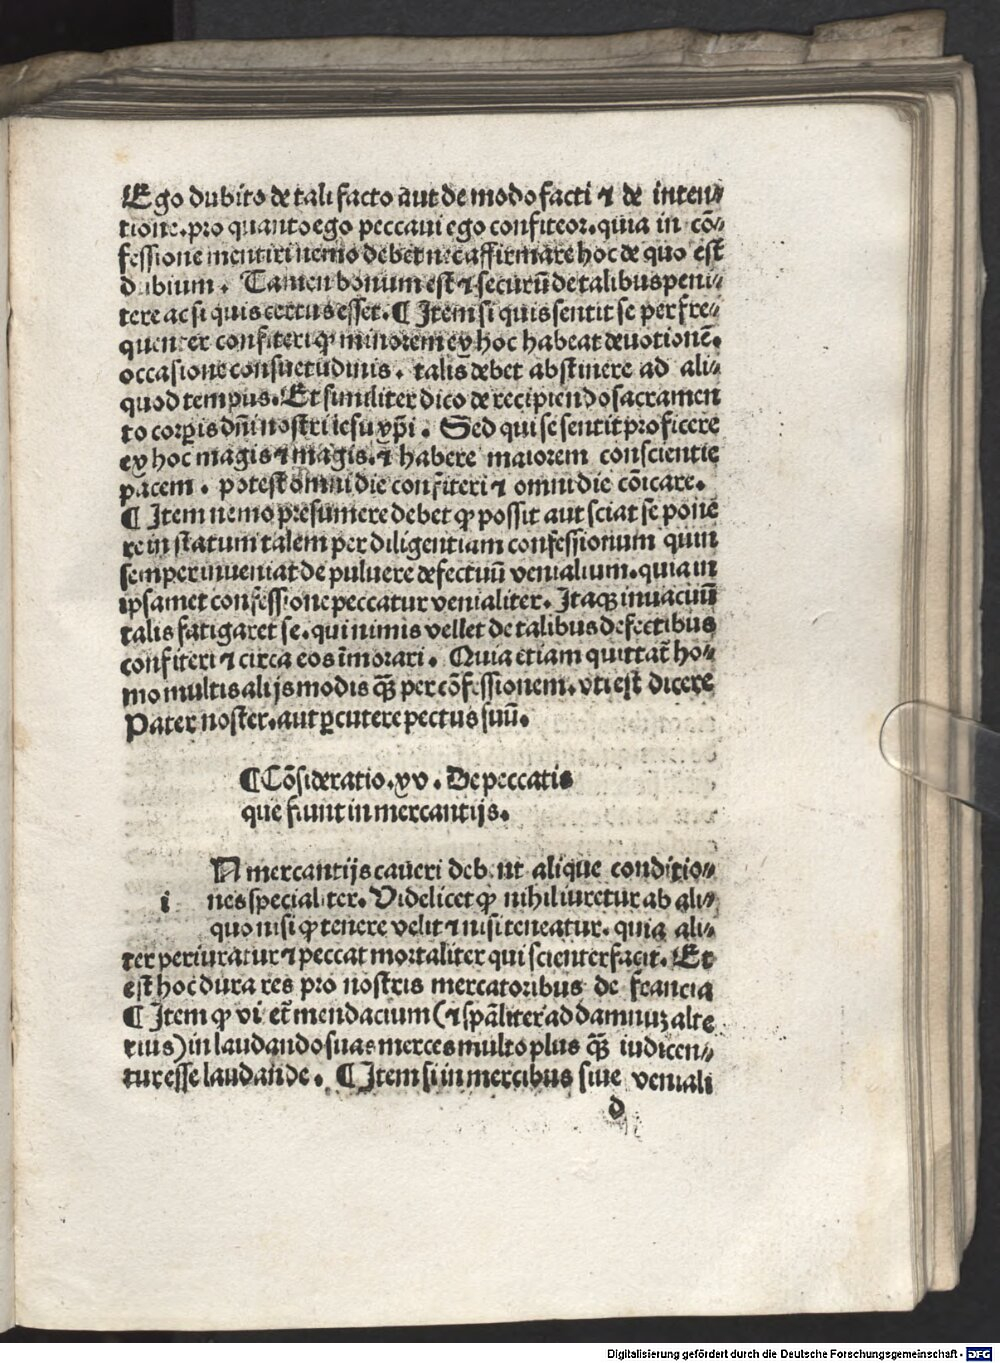 Ego dubito de tali facto aut de modo facti ⁊ de inten⸗
tione. pro quanto ego peccaui ego confiteor. quia in cō⸗
fessione mentiri nemo debet nec affirmare hoc de quo est
dubium. Tamen bonum est ⁊ securū de talibus peni⸗
tere ac si quis certus esset. ¶ Item si quis sentit se per fre⸗
quenter confiteri ꝙ minorem ex hoc habeat deuotionē.
occasione consuetudinis. talis debet abstinere ad ali⸗
quod tempus. Et similiter dico de recipiendo sacramen
to corꝑis dn̄i nostri iesu xp̄i. Sed qui se sentit proficere
ex hoc magis ⁊ magis. ⁊ habere maiorem conscientie
pacem. potest omni die confiteri ⁊ omni die cōicare.
¶ Item nemo presumere debet ꝙ possit aut sciat se pone
re in statum talem per diligentiam confessionum quin
semper inueniat de puluere defectuū venialium. quia in
ipsamet confessione peccatur venialiter. Itaqꝫ inuacuū
talis fatigaret se. qui nimis vellet de talibus defectibus
confiteri ⁊ circa eos īmorari. Quia etiam quittat̄ ho⸗
mo multis alijs modis qꝫ̄ per cōfessionem. vti est dicere
Pater noster. aut ꝑcutere pectus suū.
¶ Cōsideratio. xv. De peccatis
que fiunt in mercantijs.
i
N mercantijs caueri debent alique conditio⸗
nes specialiter. Videlicet ꝙ nihil iuretur ab ali⸗
quo nisi ꝙ tenere velit ⁊ nisi teneatur. quia ali⸗
ter periuratur ⁊ peccat mortaliter qui scienter facit. Et
est hoc dura res pro nostris mercatoribus de francia
¶ Item ꝙ vitet̄ mendacium (⁊ spāliter ad damnuꝫ alte
rius) in laudando suas merces multo plus qꝫ̄ iudicen⸗
tur esse laudande. ¶ Item si in mercibus siue veniali
d
Digitalisierung gefördert durch die Deutsche Forschungsgemeinschaft - DFG